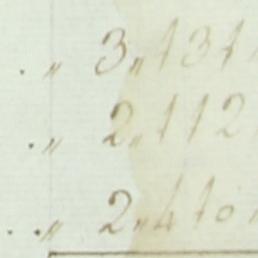 . „ 3„131
. „ 2„112
. . „ 2„410